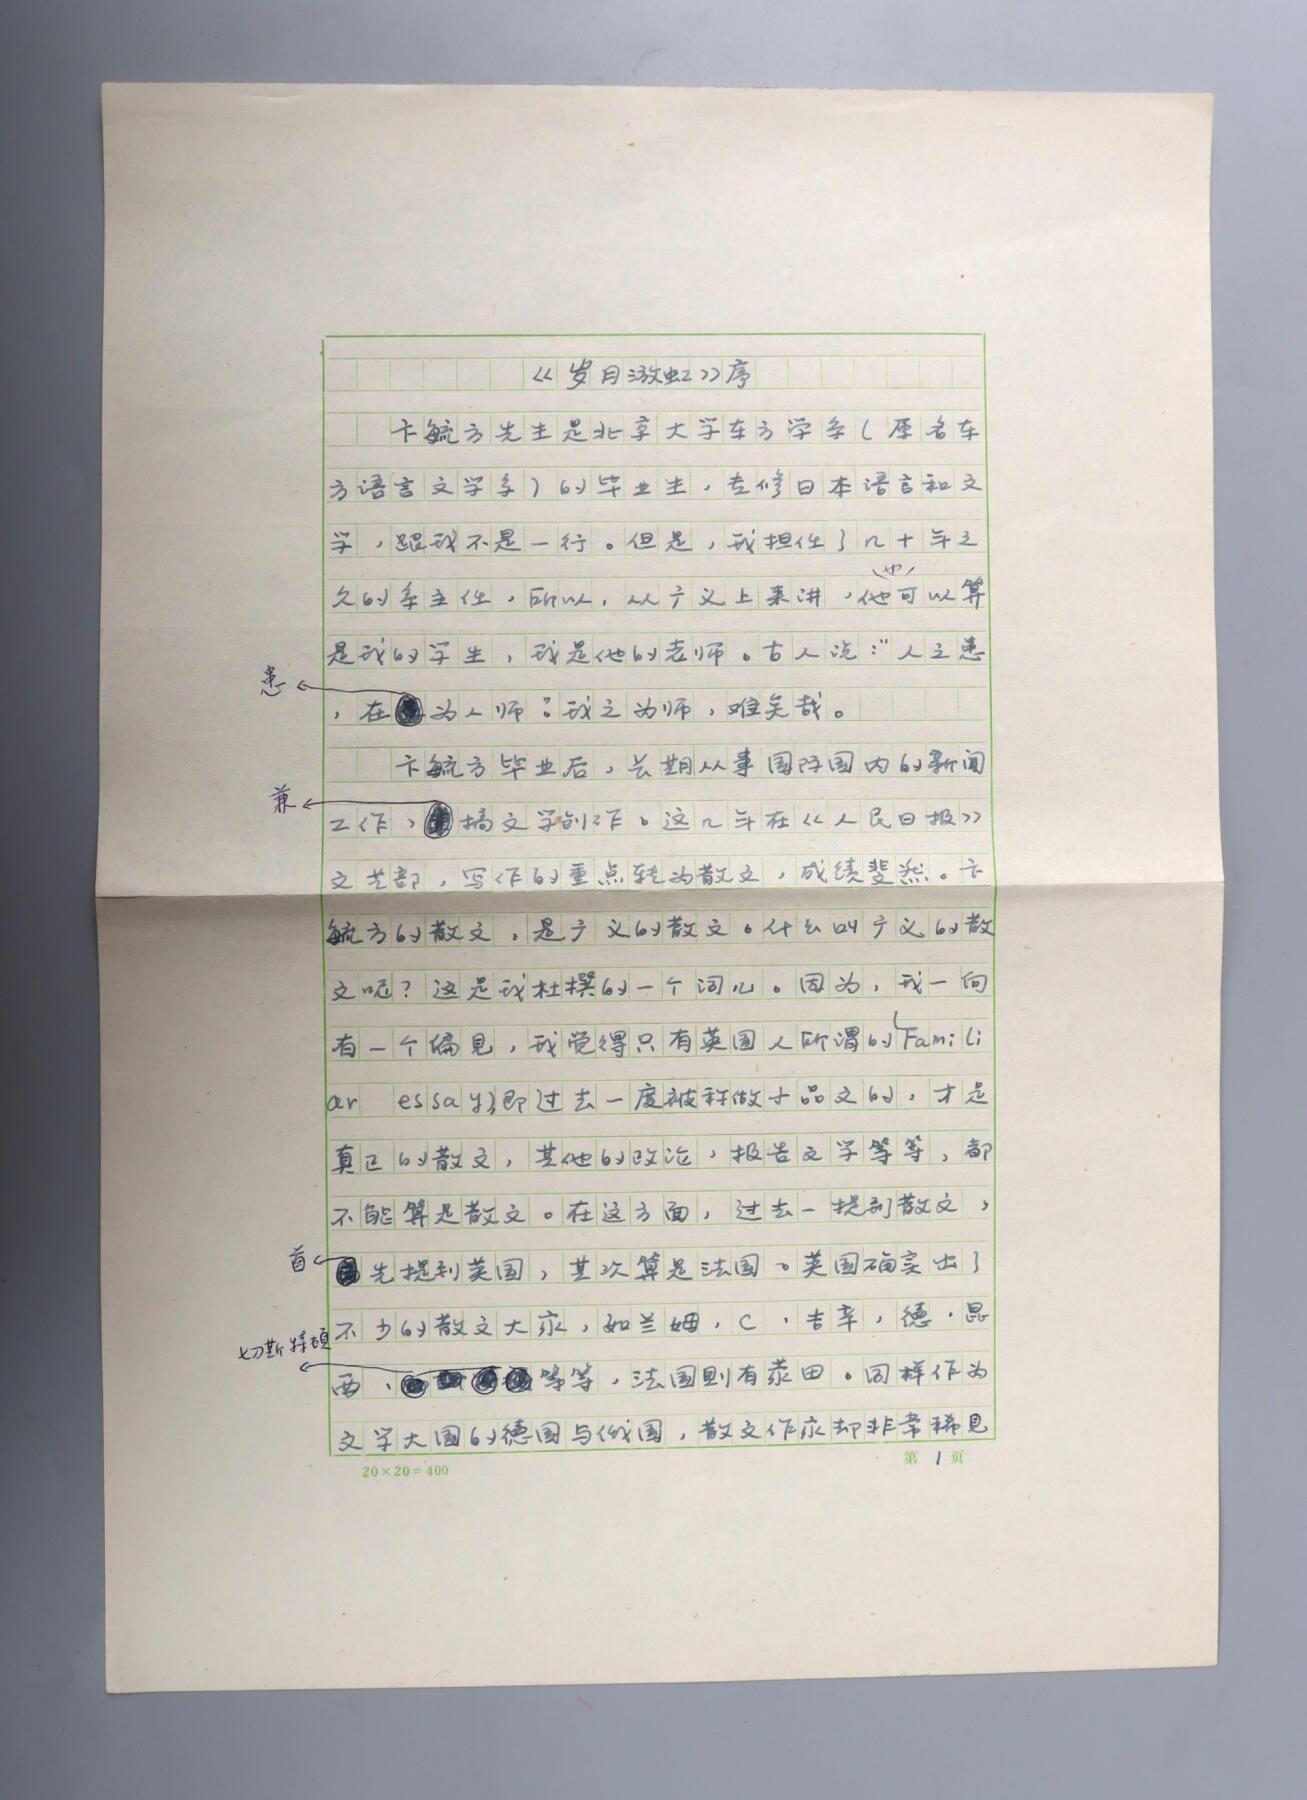 《岁月游虹》序
卞毓方先生是北京大学东方学系(原名东
方语言文学系)的毕业生,专修日本语言和文
学,跟我不是一行。但是,我担任了几十年之
也
久的系主任,所以,从广义上来讲,他可以算
是我的学生,我是他的老师。古人说:“人之患
患
,在为人师。”我之为师,难矣哉。
卞毓方毕业后,长期从事国际国内的新闻
兼
工作,搞文学创作。这几年在《人民日报》
文艺部,写作的重点转为散文,成绩斐然。卞
毓方的散文,是广义的散文。什么叫广义的散
文呢?这是我杜撰的一个词儿。因为,我一向
有一个偏见,我觉得只有英国人所谓的(Famili
ar essay)即过去一度被称做小品文的,才是
真正的散文,其他的政论,报告文学等等,都
不能算是散文。在这方面,过去一提到散文,
首
先提到英国,其次算是法国。英国确实出了
不少的散文大家,如兰姆,C·吉辛,德·昆
切斯特顿
西、等等,法国则有蒙田。同样作为
文学大国的德国与俄国,散文作家却非常稀见
20×20=400
第 1 页